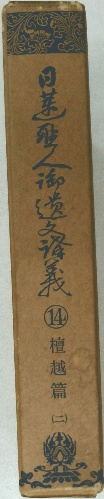 日蓮聖人御遺文講義
⑭
檀越篇
(二)